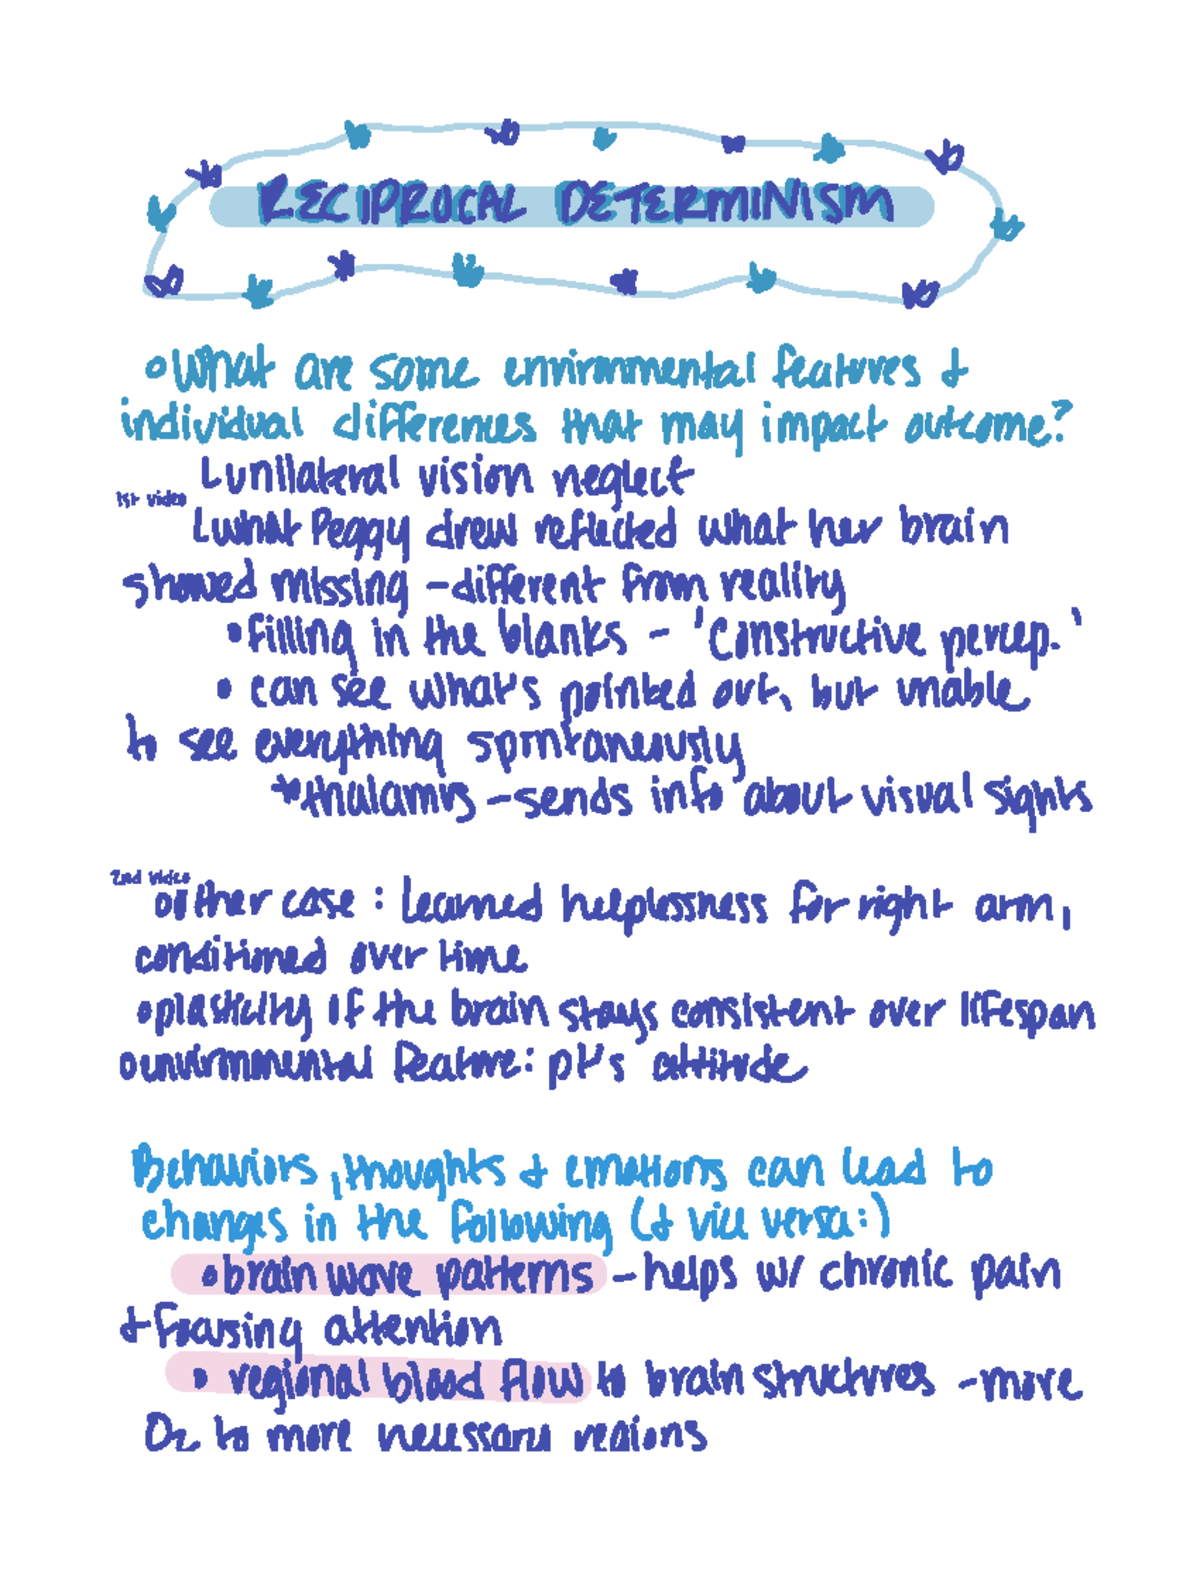 RECIPROCAL DETERMINISM
•What are some environmental features &
individual differences that may impact outcome?
↳unilateral vision neglect
1st video
↳what Peggy drew reflected what her brain
showed missing - different from reality
•filling in the blanks - 'constructive percep.'
• can see what's pointed out, but unable
to see everything spontaneously
*thalamus - sends info about visual sights
2nd video
other case: learned helplessness for right arm,
conditioned over time
•plasticity of the brain stays consistent over lifespan
•environmental feature: pt's attitude
Behaviors, thoughts & emotions can lead to
changes in the following (& vice versa:)
•brain wave patterns - helps w/ chronic pain
& focusing attention
• regional blood flow to brain structures - more
O₂ to more necessary regions